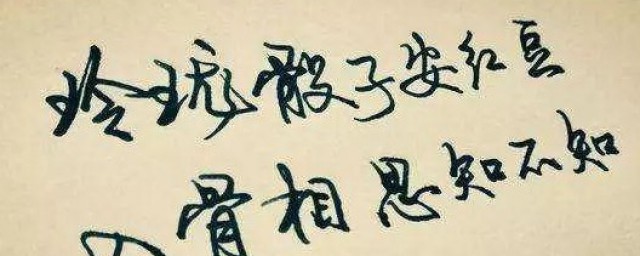 玲珑骰子安红豆
骨相思知不知